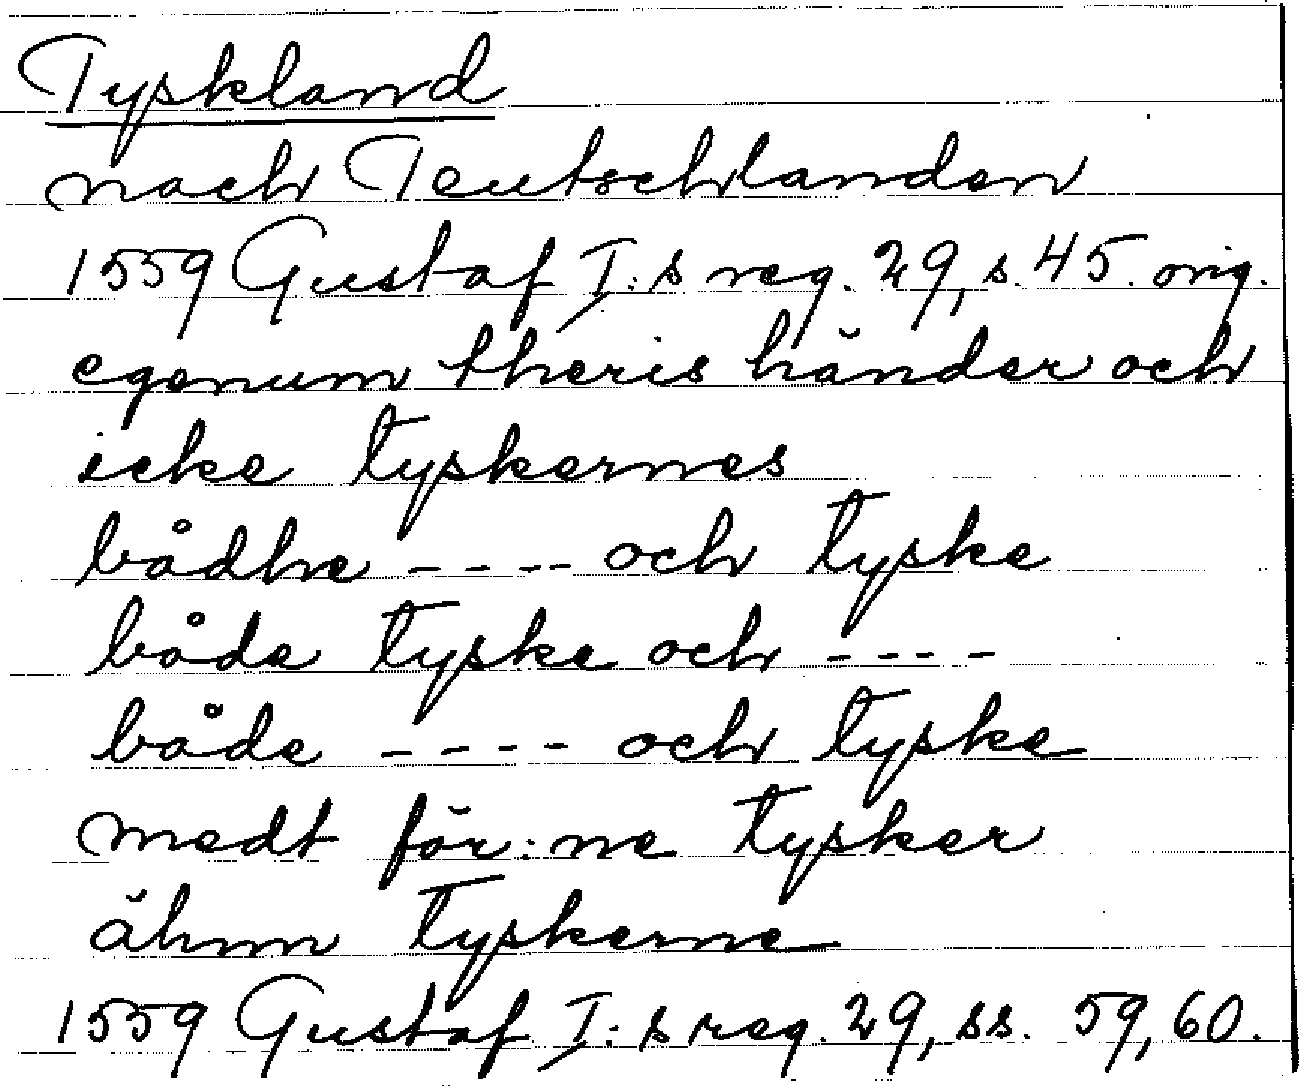 Tyskland
nach Teutschlanden
1559 Gustaf I:s reg. 29, s. 45. orig.
egenum theris händer och
icke tyskernes
bådhe ---- och tyske
både tyske och ----
både ---- och tyske
medt för:ne tysker
ähnn tyskerne
1559 Gustaf I:s reg. 29, ss. 59, 60.